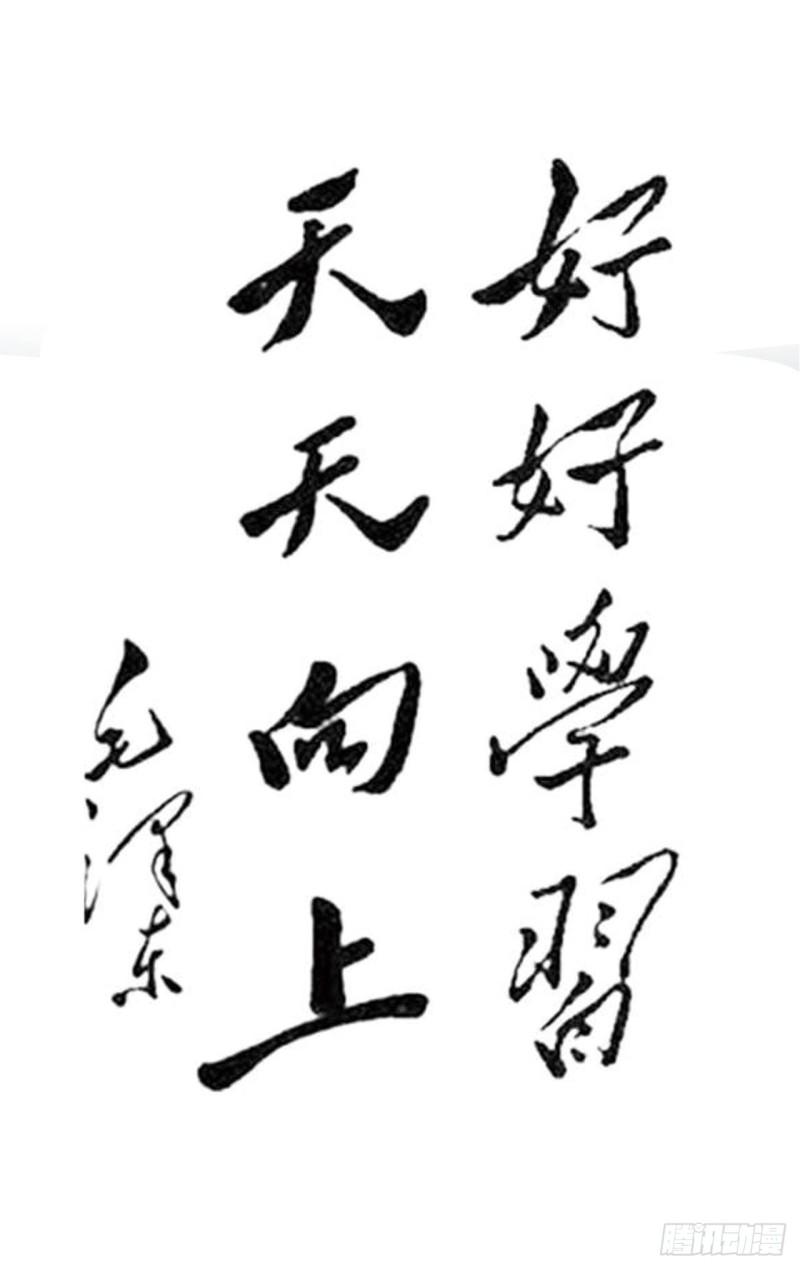 好好學習
天天向上
毛泽东
腾讯动漫